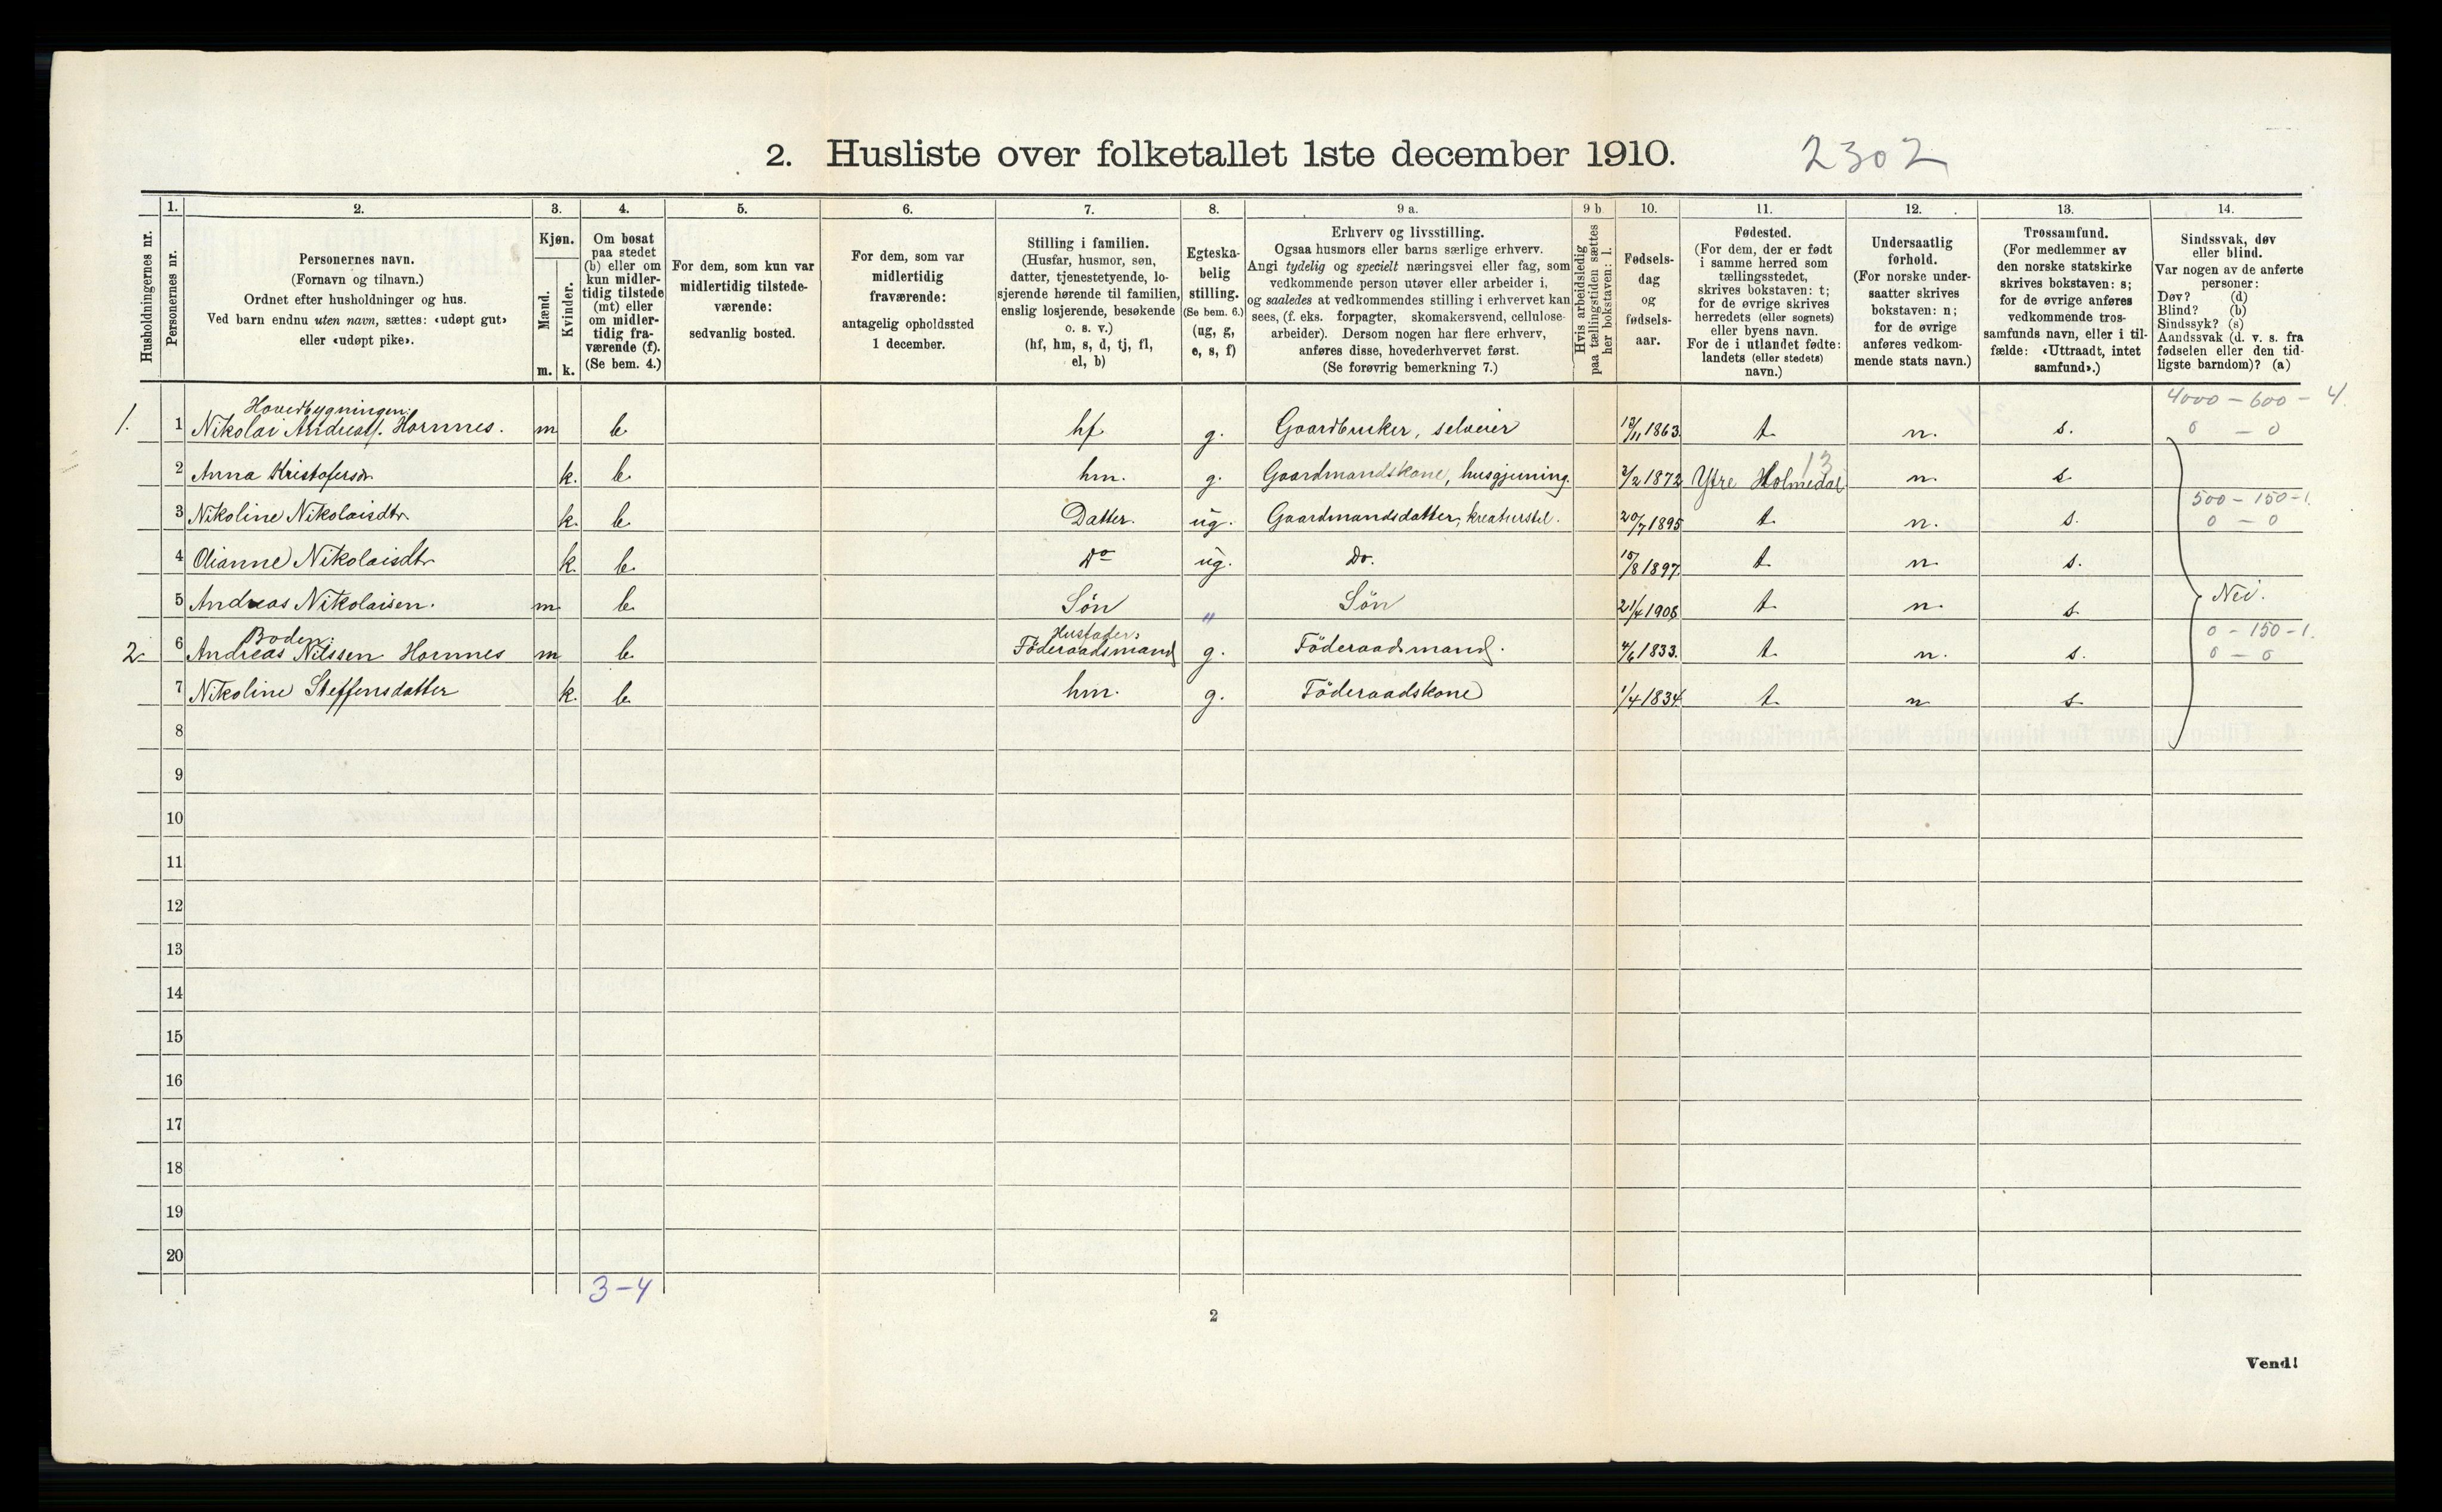 2. Husliste over folketallet 1ste december 1910. 2302
Husholdningernes nr.
1.
Personernes nr.
2.
Personernes navn.
(Fornavn og tilnavn.)
Ordnet efter husholdninger og hus.
Ved barn endnu uten navn, sættes: «udøpt gut»
eller «udøpt pike».
3.
Kjøn.
Mænd.
Kvinder.
m. k.
4.
Om bosat
paa stedet
(b) eller om
kun midler-
tidig tilstede
(mt) eller
om midler-
tidig fra-
værende (f).
(Se bem. 4.)
5.
For dem, som kun var
midlertidig tilstede-
værende:
sedvanlig bosted.
6.
For dem, som var
midlertidig
fraværende:
antagelig opholdssted
1 december.
7.
Stilling i familien.
(Husfar, husmor, søn,
datter, tjenestetyende, lo-
sjerende hørende til familien,
enslig losjerende, besøkende
o. s. v.)
(hf, hm, s, d, tj, fl,
el, b)
8.
Egteska-
belig
stilling.
(Se bem. 6.)
(ug, g,
e, s, f)
9 a.
Erhverv og livsstilling.
Ogsaa husmors eller barns særlige erhverv.
Angi tydelig og specielt næringsvei eller fag, som
vedkommende person utøver eller arbeider i,
og saaledes at vedkommendes stilling i erhvervet kan
sees, (f. eks. forpagter, skomakersvend, cellulose-
arbeider). Dersom nogen har flere erhverv,
anføres disse, hovederhvervet først.
(Se forøvrig bemerkning 7.)
9 b.
Hvis arbeidsledig
paa tællingstiden sættes
her bokstaven: l.
10.
Fødsels-
dag
og
fødsels-
aar.
11.
Fødested.
(For dem, der er født
i samme herred som
tællingsstedet,
skrives bokstaven: t;
for de øvrige skrives
herredets (eller sognets)
eller byens navn.
For de i utlandet fødte:
landets (eller stedets)
navn.)
12.
Undersaatlig
forhold.
(For norske under-
saatter skrives
bokstaven: n;
for de øvrige
anføres vedkom-
mende stats navn.)
13.
Trossamfund.
(For medlemmer av
den norske statskirke
skrives bokstaven: s;
for de øvrige anføres
vedkommende tros-
samfunds navn, eller i til-
fælde: «Uttraadt, intet
samfund».)
14.
Sindssvak, døv
eller blind.
Var nogen av de anførte
personer:
Døv? (d)
Blind? (b)
Sindssyk? (s)
Aandssvak (d. v. s. fra
fødselen eller den tid-
ligste barndom)? (a)
Hovedbygningen: 4000 - 600 - 4.
1. 1 Nikolai Andreas. Hornnes. m b. hf. g. Gaardbruker, selveier 13/11 1863. t. n. s. 0 - 0
13
2 Anna Kristofersdr k. b. hm. g. Gaardmandskone, husgjerning. 2/2 1872 Ytre Holmedal n. s.
500 - 150 - 1.
3 Nikoline Nikolaisdtr. k. b. Datter. ug. Gaardmandsdatter, kreaturstel. 20/7 1895 t. n. s. 0 - 0
4 Olianne Nikolaisdtr k. b. Do ug. Do. 15/8 1897. t. n. s.
5 Andreas Nikolaisen. m b. Søn " Søn 21/4 1906 t. n. s. Nei.
Boden: Husfader, 0 - 150 - 1.
2. 6 Andreas Nilssen Hornnes m b. Föderaadsmand g. Föderaadsmand. 4/6 1833. t. n. s. 0 - 0
7 Nikoline Steffensdatter k. b. hm. g. Föderaadskone 1/4 1834 t. n s.
8
9
10
11
12
13
14
15
16
17
18
19
20
3-4
2
Vend!